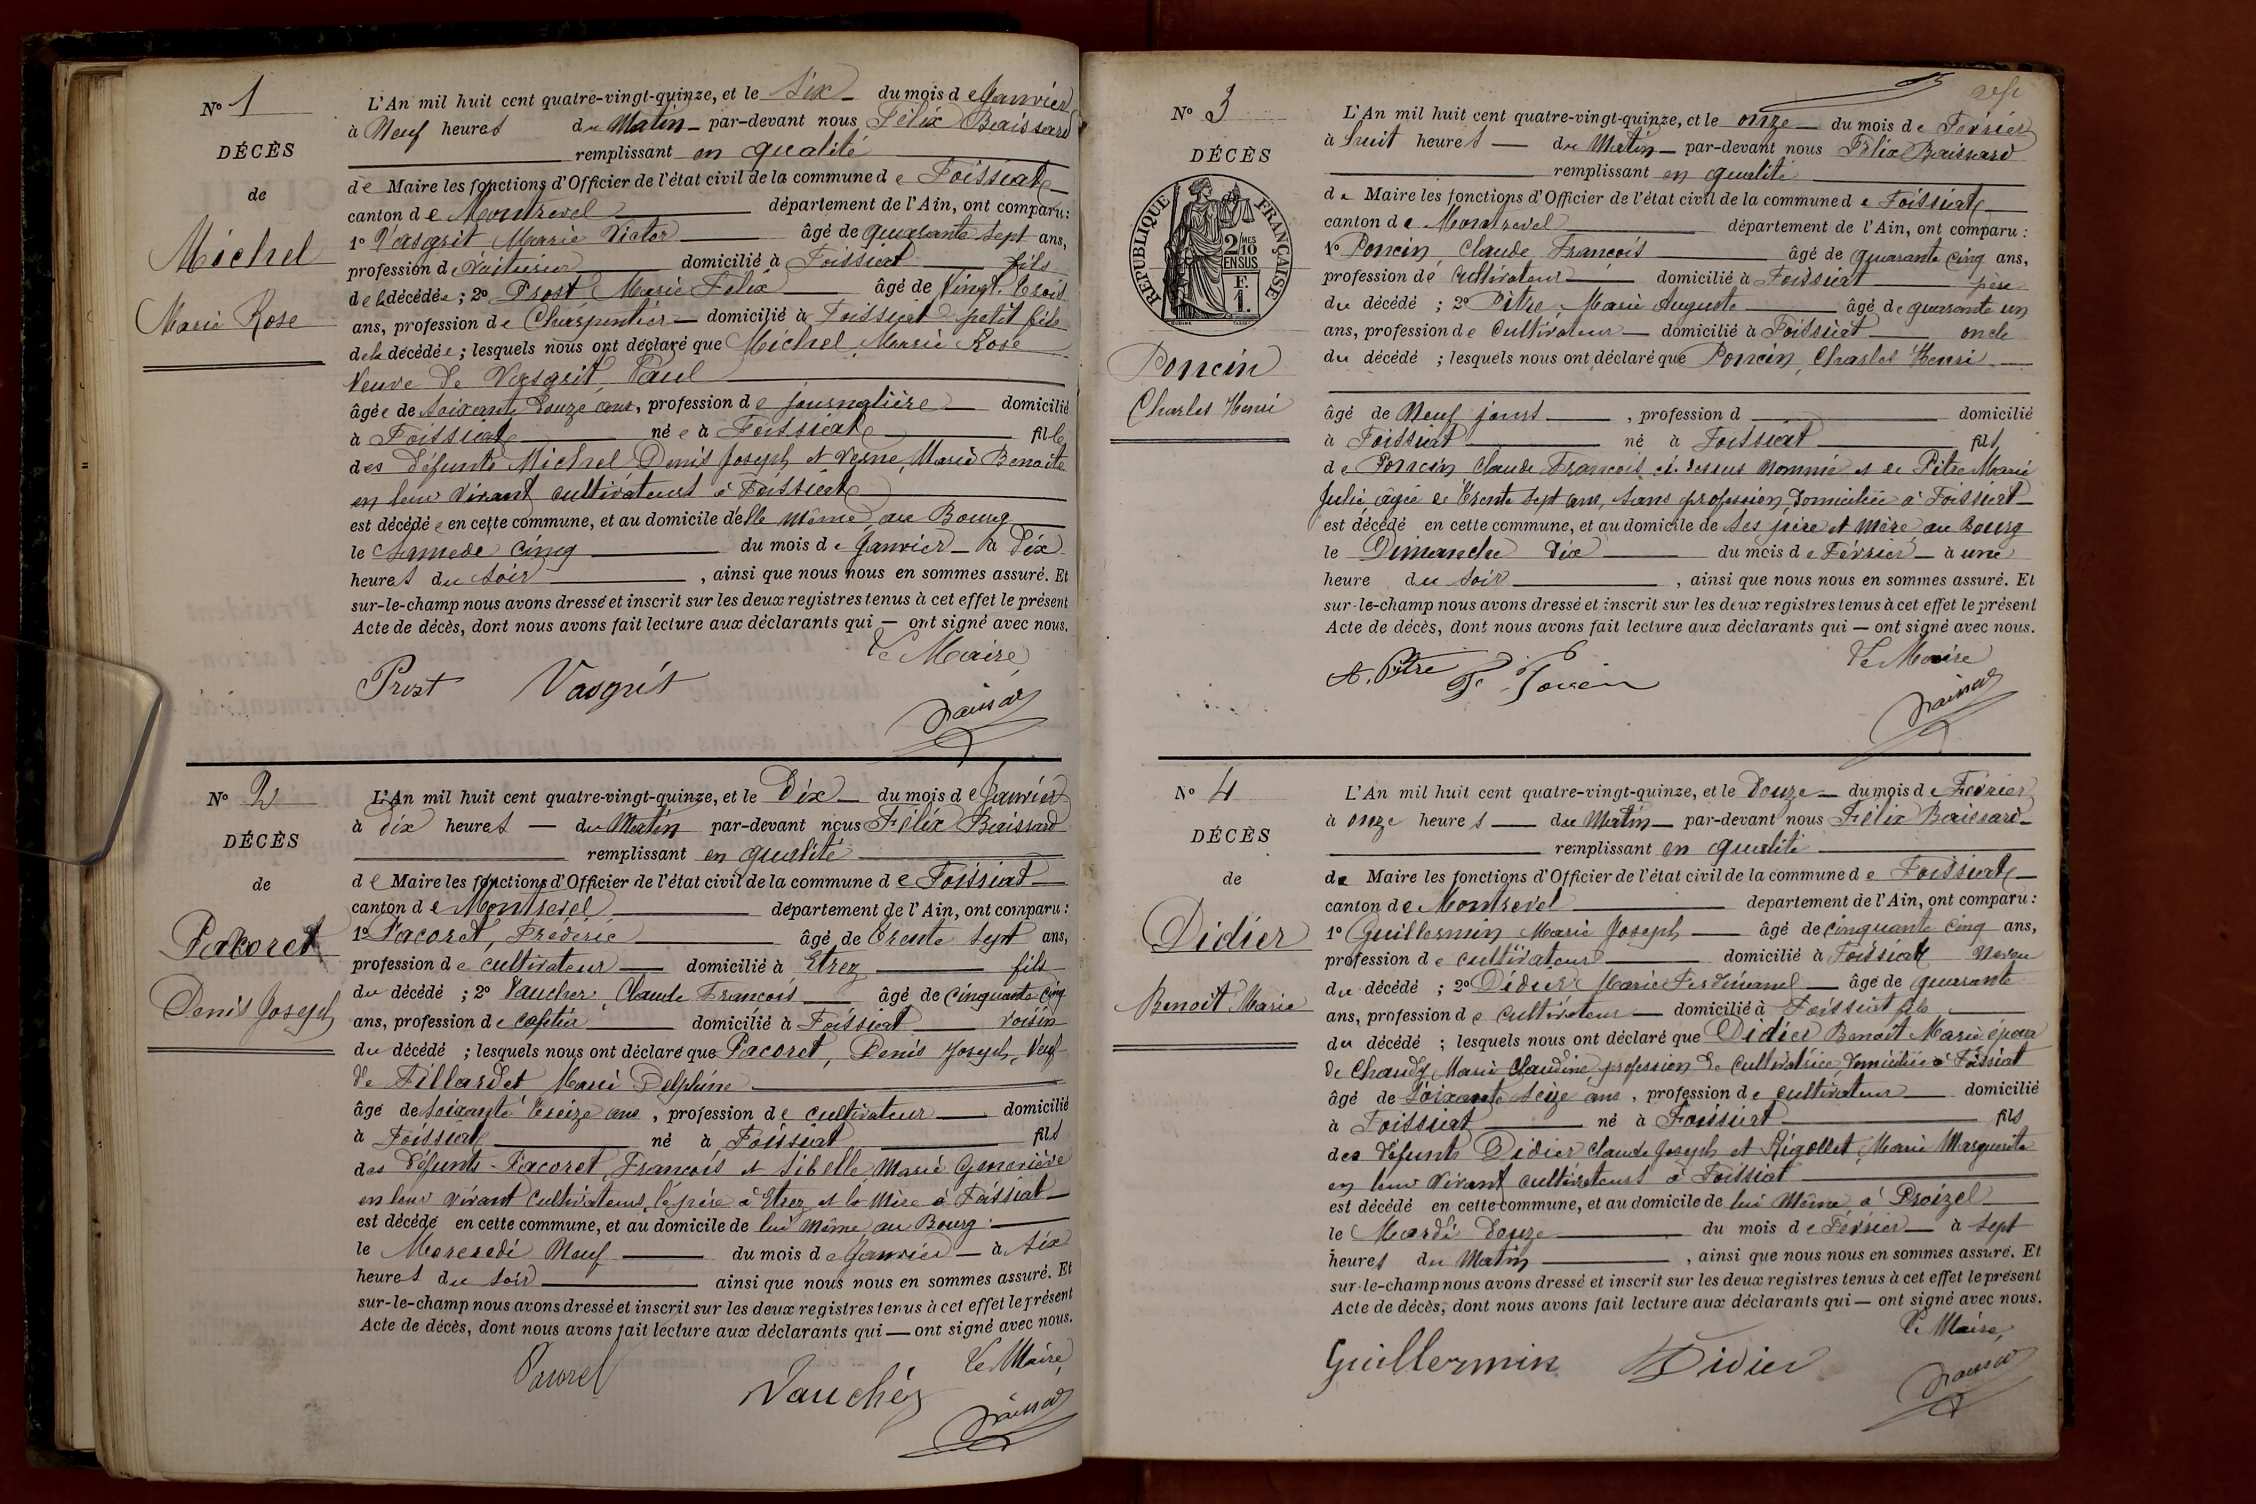 N° 1
DÉCÈS
de
Michel
Marie Rose
L'An mil huit cent quatre-vingt-quinze, et le Six du mois de Janvier
à Neuf heures du Matin par-devant nous Félix Baissard
remplissant en qualité
de Maire les fonctions d'Officier de l'état civil de la commune de Foissiat
canton de Montrevel département de l'Ain, ont comparu:
1° Vasgrit Marie Victor âgé de quarante sept ans,
profession de Voiturier domicilié à Foissiat fils
de la décédée; 2° Prost Marie Félix âgé de Vingt trois
ans, profession de Charpentier domicilié à Foissiat petit fils
de la décédée; lesquels nous ont déclaré que Michel Marie Rose
Veuve de Vasgrit, Paul
âgée de soixante douze ans, profession de journalière domicilié
à Foissiat née à Foissiat fille
des défunts Michel Denis Joseph et Vesne, Marie Benoite
en leur vivant cultivateurs à Foissiat
est décédée en cette commune, et au domicile d'elle même au Bourg
le Samedi cinq du mois de Janvier à Dix
heures du soir, ainsi que nous nous en sommes assuré. Et
sur-le-champ nous avons dressé et inscrit sur les deux registres tenus à cet effet le présent
Acte de décès, dont nous avons fait lecture aux déclarants qui — ont signé avec nous.
Le Maire
Prost Vasgrit
Baissard
N° 2
DÉCÈS
de
Pacoret
Denis Joseph
L'An mil huit cent quatre-vingt-quinze, et le Dix du mois de Janvier
à dix heures du Matin par-devant nous Félix Baissard
remplissant en qualité
de Maire les fonctions d'Officier de l'état civil de la commune de Foissiat
canton de Montrevel département de l'Ain, ont comparu:
1° Pacoret, Frédéric âgé de trente sept ans,
profession de cultivateur domicilié à Etrez fils
du décédé; 2° Vaucher Claude François âgé de cinquante cinq
ans, profession de cafetier domicilié à Foissiat voisin
du décédé; lesquels nous ont déclaré que Pacoret, Denis Joseph, Veuf
de Fillardet Marie Delphine
âgé de soixante treize ans, profession de cultivateur domicilié
à Foissiat né à Foissiat fils
des défunts Pacoret, François et Sibelle Marie Geneviève
en leur vivant cultivateurs, le père à Etrez et la Mère à Foissiat
est décédé en cette commune, et au domicile de lui même au Bourg
le Mercredi Neuf du mois de Janvier à Six
heures du soir ainsi que nous nous en sommes assuré. Et
sur-le-champ nous avons dressé et inscrit sur les deux registres tenus à cet effet le présent
Acte de décès, dont nous avons fait lecture aux déclarants qui — ont signé avec nous.
Le Maire,
Pacoret Vauchér
Baissard
N° 3
DÉCÈS
RÉPUBLIQUE FRANÇAISE
2/10 MES
EN SUS
F.
1.
Poncin
Charles Henri
L'An mil huit cent quatre-vingt-quinze, et le onze du mois de Février
à huit heures du Matin par-devant nous Félix Baissard
remplissant en qualité
de Maire les fonctions d'Officier de l'état civil de la commune de Foissiat
canton de Montrevel département de l'Ain, ont comparu:
1° Poncin, Claude François âgé de quarante cinq ans,
profession de cultivateur domicilié à Foissiat père
du décédé; 2° Pitre, Marie Auguste âgé de quarante un
ans, profession de cultivateur domicilié à Foissiat oncle
du décédé; lesquels nous ont déclaré que Poncin, Charles Henri
âgé de Neuf jours, profession d domicilié
à Foissiat né à Foissiat fils
de Poncin Claude François ci-dessus nommé et de Pitre Marie
Julie, âgée de trente sept ans, sans profession, domiciliée à Foissiat
est décédé en cette commune, et au domicile de ses père et mère au Bourg
le Dimanche dix du mois de Février à une
heure du soir, ainsi que nous nous en sommes assuré. Et
sur-le-champ nous avons dressé et inscrit sur les deux registres tenus à cet effet le présent
Acte de décès, dont nous avons fait lecture aux déclarants qui — ont signé avec nous.
Le Maire
A. Pitre
Baissard
N° 4
DÉCÈS
de
Didier
Benoit Marie
L'An mil huit cent quatre-vingt-quinze, et le Douze du mois de Février
à onze heures du Matin par-devant nous Félix Baissard
remplissant en qualité
de Maire les fonctions d'Officier de l'état civil de la commune de Foissiat
canton de Montrevel département de l'Ain, ont comparu:
1° Guillermin Marie Joseph âgé de cinquante cinq ans,
profession de cultivateur domicilié à Foissiat neveu
du décédé; 2° Didier Marie Ferdinand âgé de quarante
ans, profession de cultivateur domicilié à Foissiat fils
du décédé; lesquels nous ont déclaré que Didier Benoit Marie époux
de Chaudy Marie Claudine profession de cultivatrice, domiciliée à Foissiat
âgé de Soixante seize ans, profession de cultivateur domicilié
à Foissiat né à Foissiat fils
des défunts Didier Claude Joseph et Rigollet, Marie Marguerite
en leur vivant cultivateurs à Foissiat
est décédé en cette commune, et au domicile de lui même à Proizel
le Mardi Douze du mois de Février à sept
heures du Matin, ainsi que nous nous en sommes assuré. Et
sur-le-champ nous avons dressé et inscrit sur les deux registres tenus à cet effet le présent
Acte de décès, dont nous avons fait lecture aux déclarants qui — ont signé avec nous.
Le Maire,
Guillermin Didier
Baissard